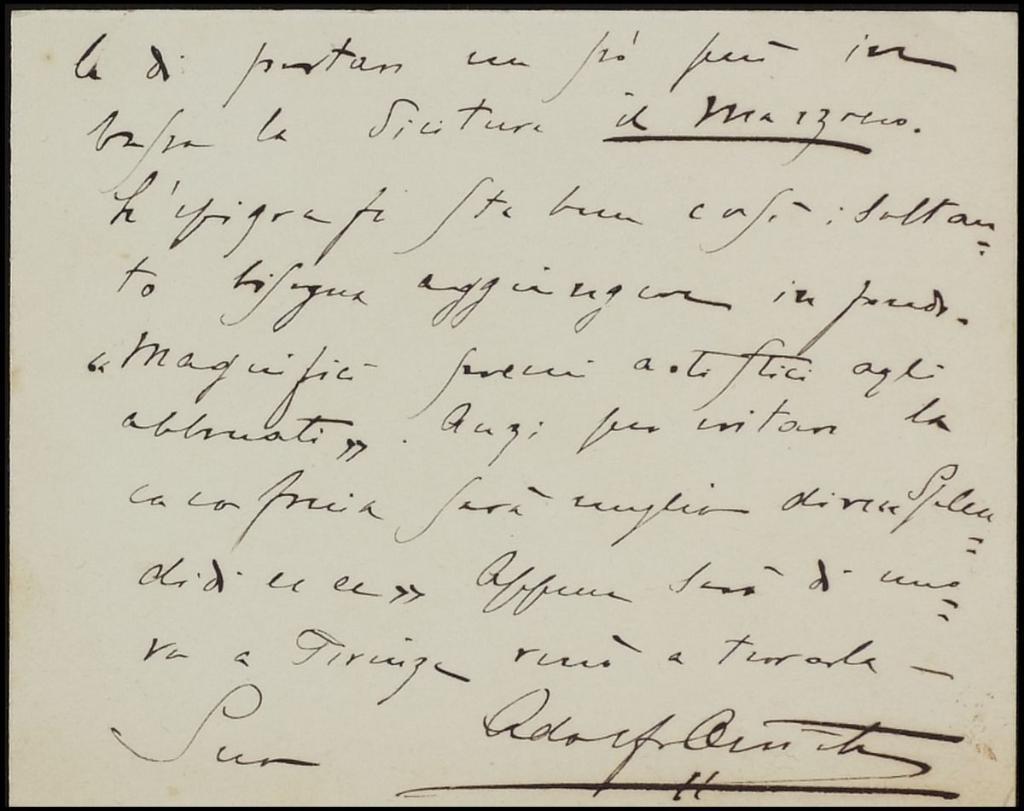 la di portare un pò più in
bassa la dicitura il Marzocco.
L'epigrafe sta bene così; soltan=
to bisogna aggiungere in fondo.
"Magnifici premi artistici agli
abbonati". Anzi per evitare la
cacofonia sarà meglio dire "Splen=
didi ecc ecc" Appena sarò di nuo=
vo a Firenze verrò a trovarla —
Suo Adolfo